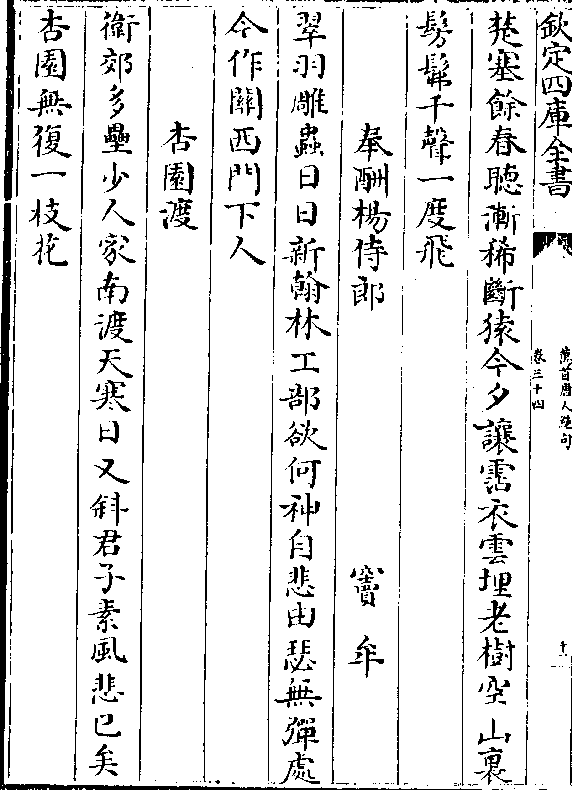 欽定四庫全書
萬首唐人絶句
卷三十四
十一
楚塞餘春聴漸稀斷猿今夕讓霑衣雲埋老樹空山裏
髣髴千聲一度飛
奉酬楊侍郎
竇牟
翠羽雕蟲日日新翰林工部欲何神自悲由瑟無彈處
今作關西門下人
杏園渡
衛郊多壘少人家南渡天寒日又斜君子素風悲已矣
杏園無復一枝花